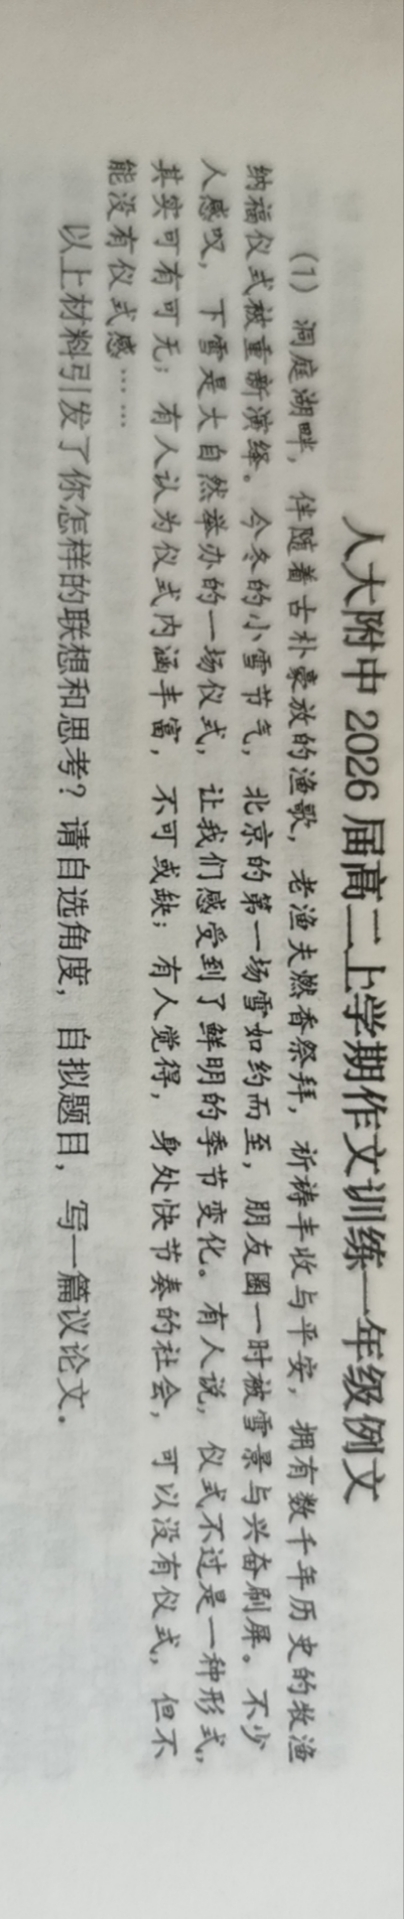 人大附中 2026 届高二上学期作文训练—年级例文
（1）洞庭湖畔，伴随着古朴豪放的渔歌，老渔夫燃香祭拜，祈祷丰收与平安，拥有数千年历史的牧渔
纳福仪式被重新演绎。今冬的小雪节气，北京的第一场雪如约而至，朋友圈一时被雪景与兴奋刷屏。不少
人感叹，下雪是大自然举办的一场仪式，让我们感受到了鲜明的季节变化。有人说，仪式不过是一种形式，
其实可有可无；有人认为仪式内涵丰富，不可或缺；有人觉得，身处快节奏的社会，可以没有仪式，但不
能没有仪式感……
以上材料引发了你怎样的联想和思考？请自选角度，自拟题目，写一篇议论文。